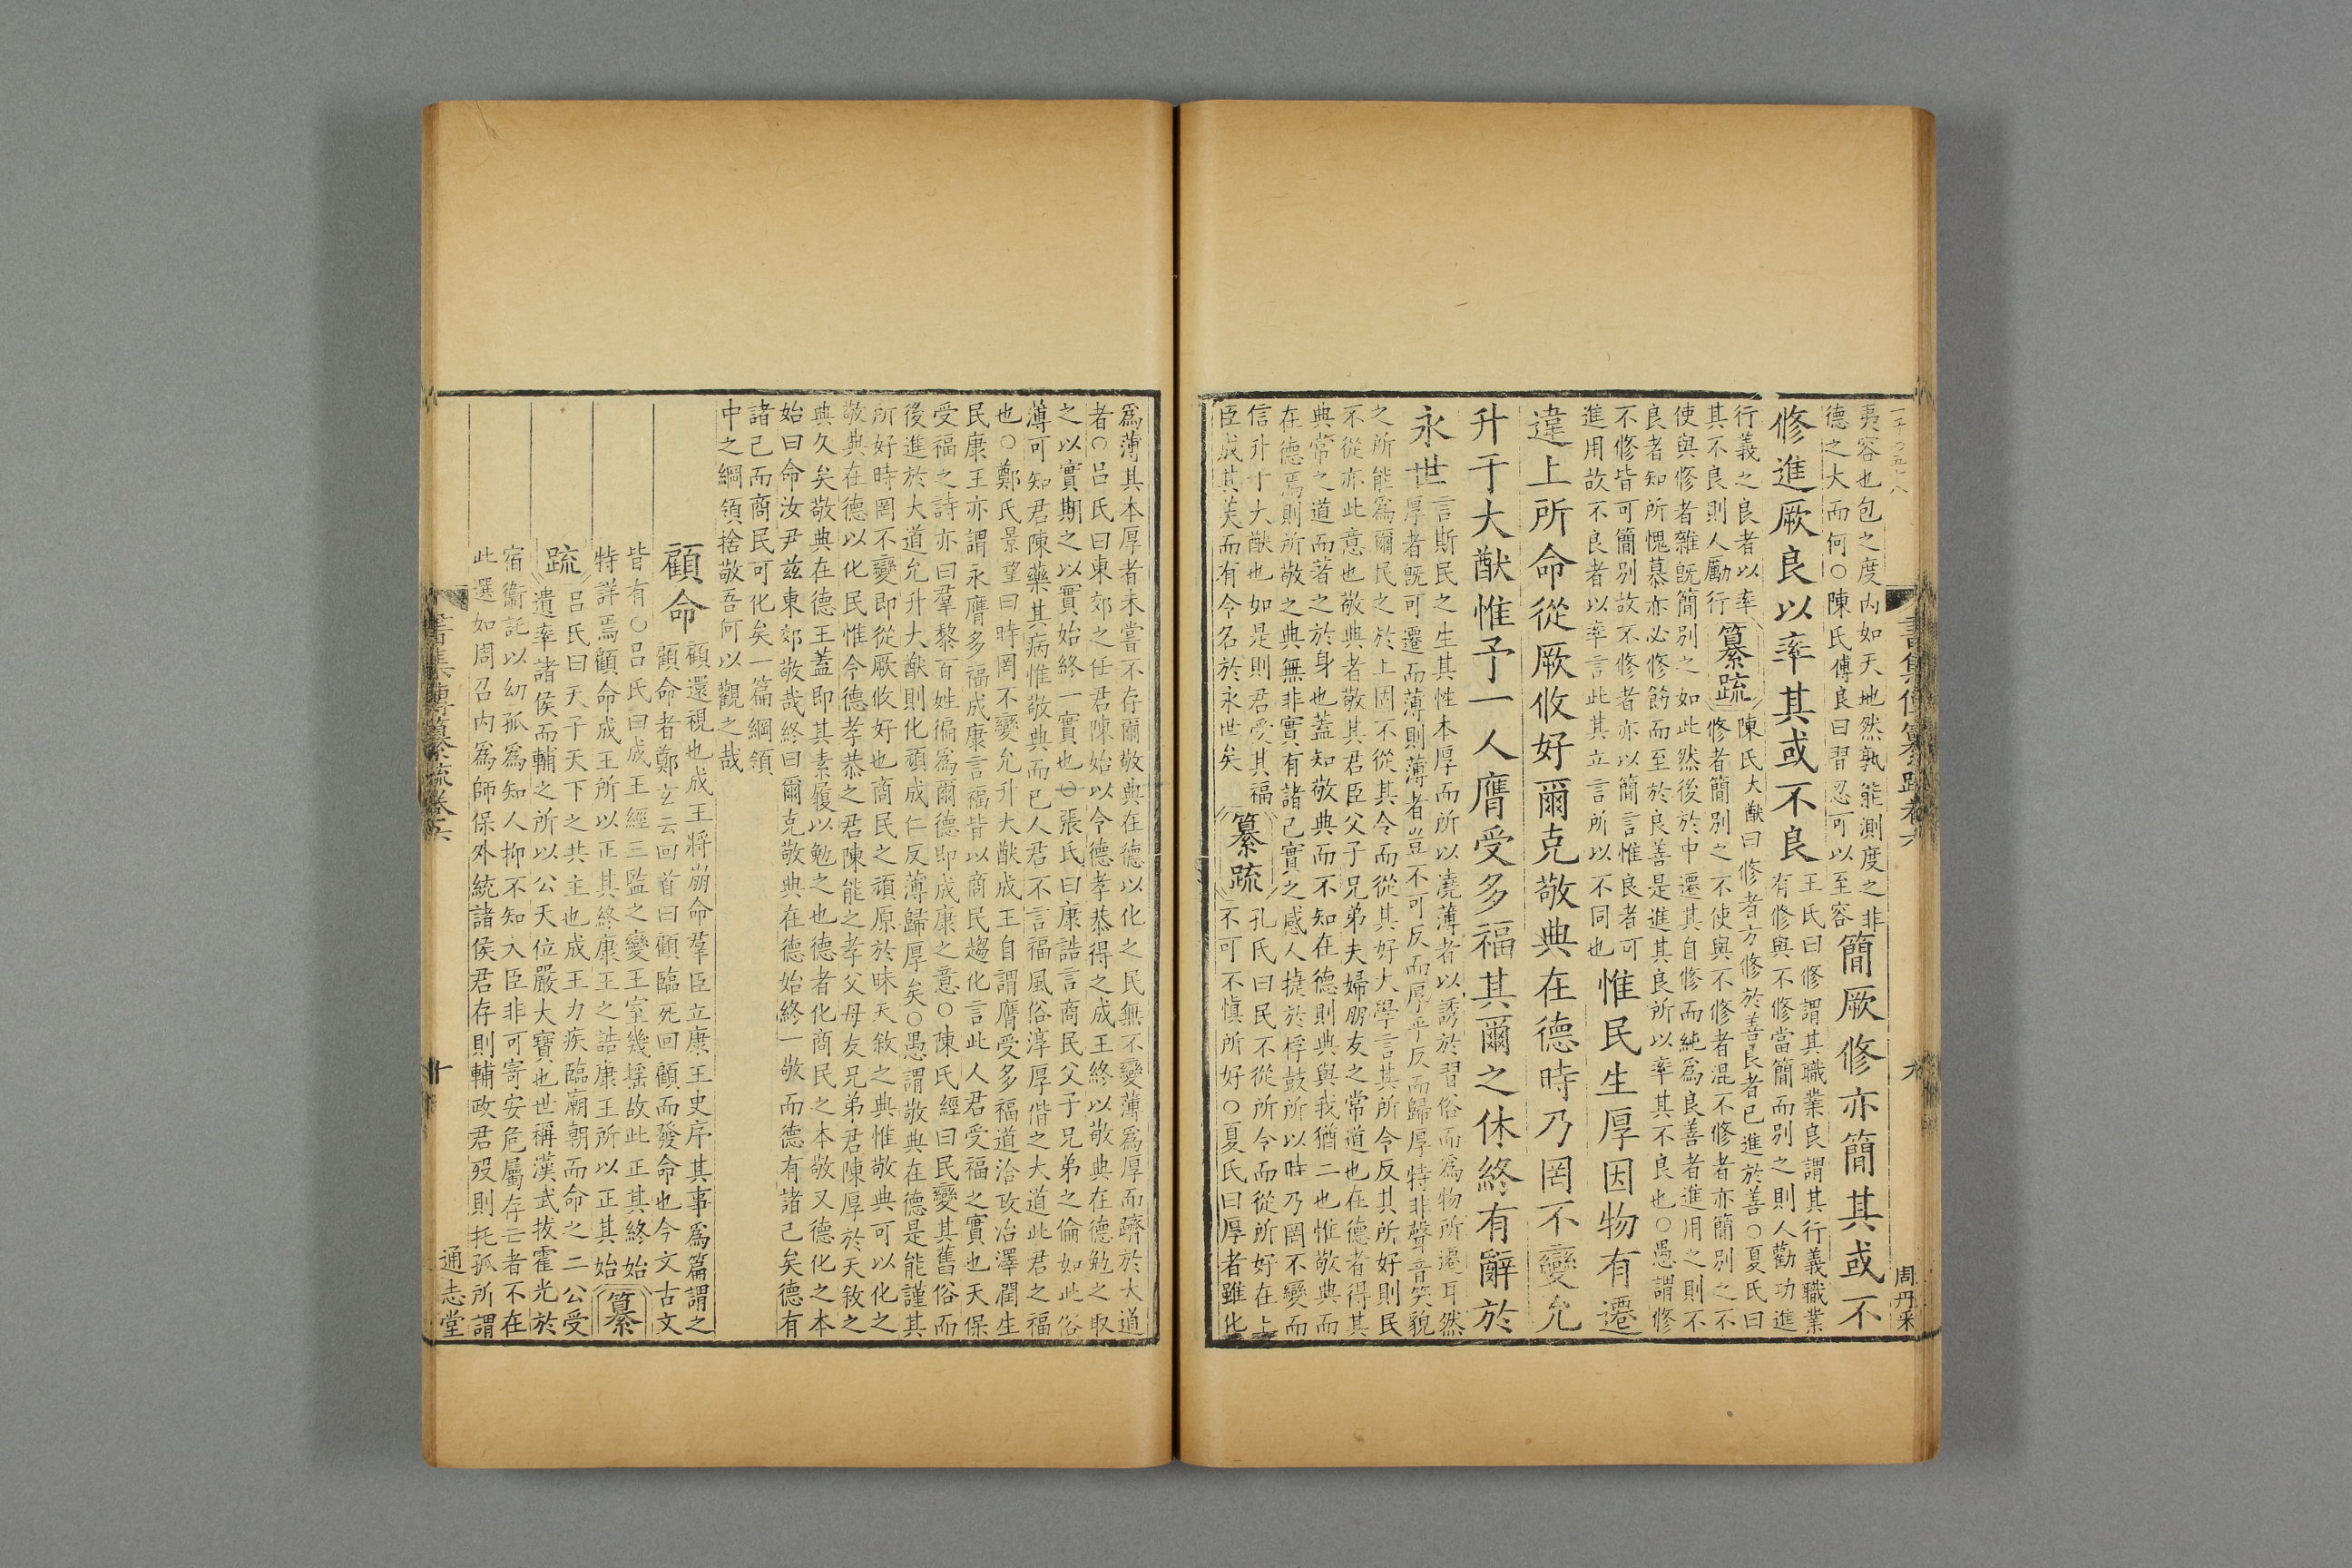 夷容也包之度内如天地然孰能測度之非
德之大而何○陳氏傅良曰習忍可以至容
簡厥修亦簡其或不
修進厥良以率其或不良
王氏曰修謂其職業良謂其行義職業
有修與不修當簡而別之則人勸功進
行義之良者以率
其不良則人勵行
纂疏
陳氏大猷曰修者方修於善良者已進於善○夏氏曰
修者簡別之不使與不修者混不修者亦簡別之不
使與修者雜旣簡別之如此然後於中遷其自修而純爲良善者進用之則不
良者知所愧慕亦必修飭而至於良善是進其良所以率其不良也○愚謂修
不修皆可簡別故不修者亦以簡言惟良者可
進用故不良者以率言此其立言所以不同也
惟民生厚因物有遷
違上所命從厥攸好爾克敬典在德時乃罔不變允
升于大猷惟予一人膺受多福其爾之休終有辭於
永世
言斯民之生其性本厚而所以澆薄者以誘於習俗而爲物所遷耳然
厚者旣可遷而薄則薄者豈不可反而厚乎反而歸厚特非聲音笑貌
之所能爲爾民之於上固不從其令而從其好大學言其所令反其所好則民
不從亦此意也敬典者敬其君臣父子兄弟夫婦朋友之常道也在德者得其
典常之道而著之於身也蓋知敬典而不知在德則典與我猶二也惟敬典而
在德焉則所敬之典無非實有諸己實之感人捷於桴鼓所以時乃罔不變而
信升于大猷也如是則君受其福
臣成其美而有令名於永世矣
纂疏
孔氏曰民不從所令而從所好在上
不可不愼所好○夏氏曰厚者雖化
書集傳纂疏卷六
九
周丹采
爲薄其本厚者未嘗不存爾敬典在德以化之民無不變薄爲厚而躋於大道
者○呂氏曰東郊之任君陳始以令德孝恭得之成王終以敬典在德勉之取
之以實期之以實始終一實也○張氏曰康誥言商民父子兄弟之倫如此俗
薄可知君陳藥其病惟敬典而已人君不言福風俗淳厚偕之大道此君之福
也○鄭氏景望曰時罔不變允升大猷成王自謂膺受多福道洽政治澤潤生
民康王亦謂永膺多福成康言福皆以商民趨化言此人君受福之實也天保
受福之詩亦曰羣黎百姓徧爲爾德即成康之意○陳氏經曰民變其舊俗而
後進於大道允升大猷則化頑成仁反薄歸厚矣○愚謂敬典在德是能謹其
所好時罔不變即從厥攸好也商民之頑原於昧天敘之典惟敬典可以化之
敬典在德以化民惟令德孝恭之君陳能之孝父母友兄弟君陳厚於天敘之
典久矣敬典在德王蓋即其素履以勉之也德者化商民之本敬又德化之本
始曰命汝尹玆東郊敬哉終曰爾克敬典在德始終一敬而德有諸己矣德有
諸己而商民可化矣一篇綱領
中之綱領捨敬吾何以觀之哉
顧命
顧還視也成王將崩命羣臣立康王史序其事爲篇謂之
顧命者鄭玄云回首曰顧臨死回顧而發命也今文古文
皆有○呂氏曰成王經三監之變王室幾揺故此正其終始
特詳焉顧命成王所以正其終康王之誥康王所以正其始
纂
疏
呂氏曰天子天下之共主也成王力疾臨廟朝而命之二公受
遺率諸侯而輔之所以公天位嚴大寶也世稱漢武拔霍光於
宿衞託以幼孤爲知人抑不知入臣非可寄安危屬存亡者不在
此選如周召内爲師保外統諸侯君存則輔政君歿則托孤所謂
書集傳纂疏卷六
十
通志堂